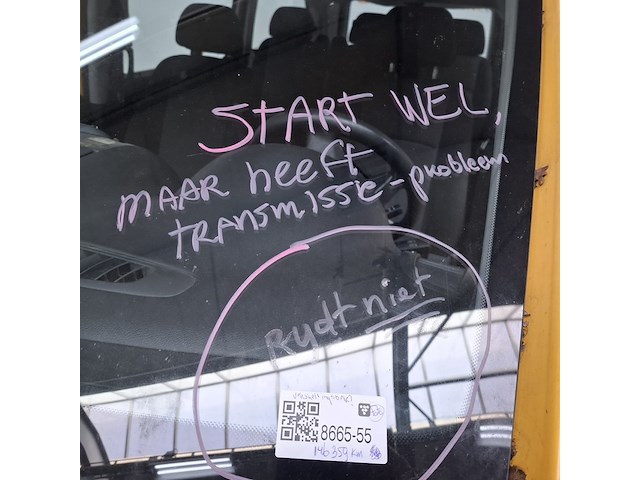 START WEL,
MAAR heeft
TRANSMISSIE-probleem
Rydt niet
8665-55
146359 km